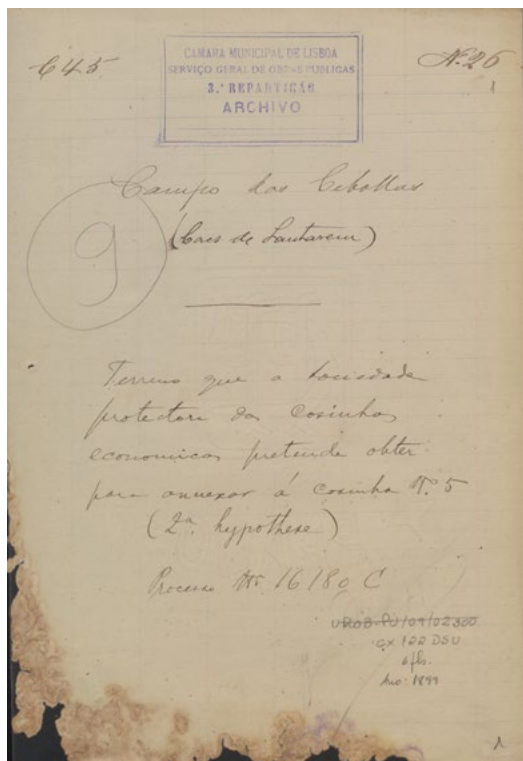 C45
CAMARA MUNICIPAL DE LISBOA
SERVIÇO GERAL DE OBRAS PUBLICAS
3.ª REPARTIÇÃO
ARCHIVO
N.º 26
1
Campo das Cebollas
(Caes de Santarem)
9
Terreno que a Sociedade
protectora das Cosinhas
economicas pretende obter
para annexar á cosinha Nº 5
(2ª hypothese)
Processo Nº 16180 C
UROB-PU/09/02300
cx 122 DSU
6 fls.
Ano: 1899
1